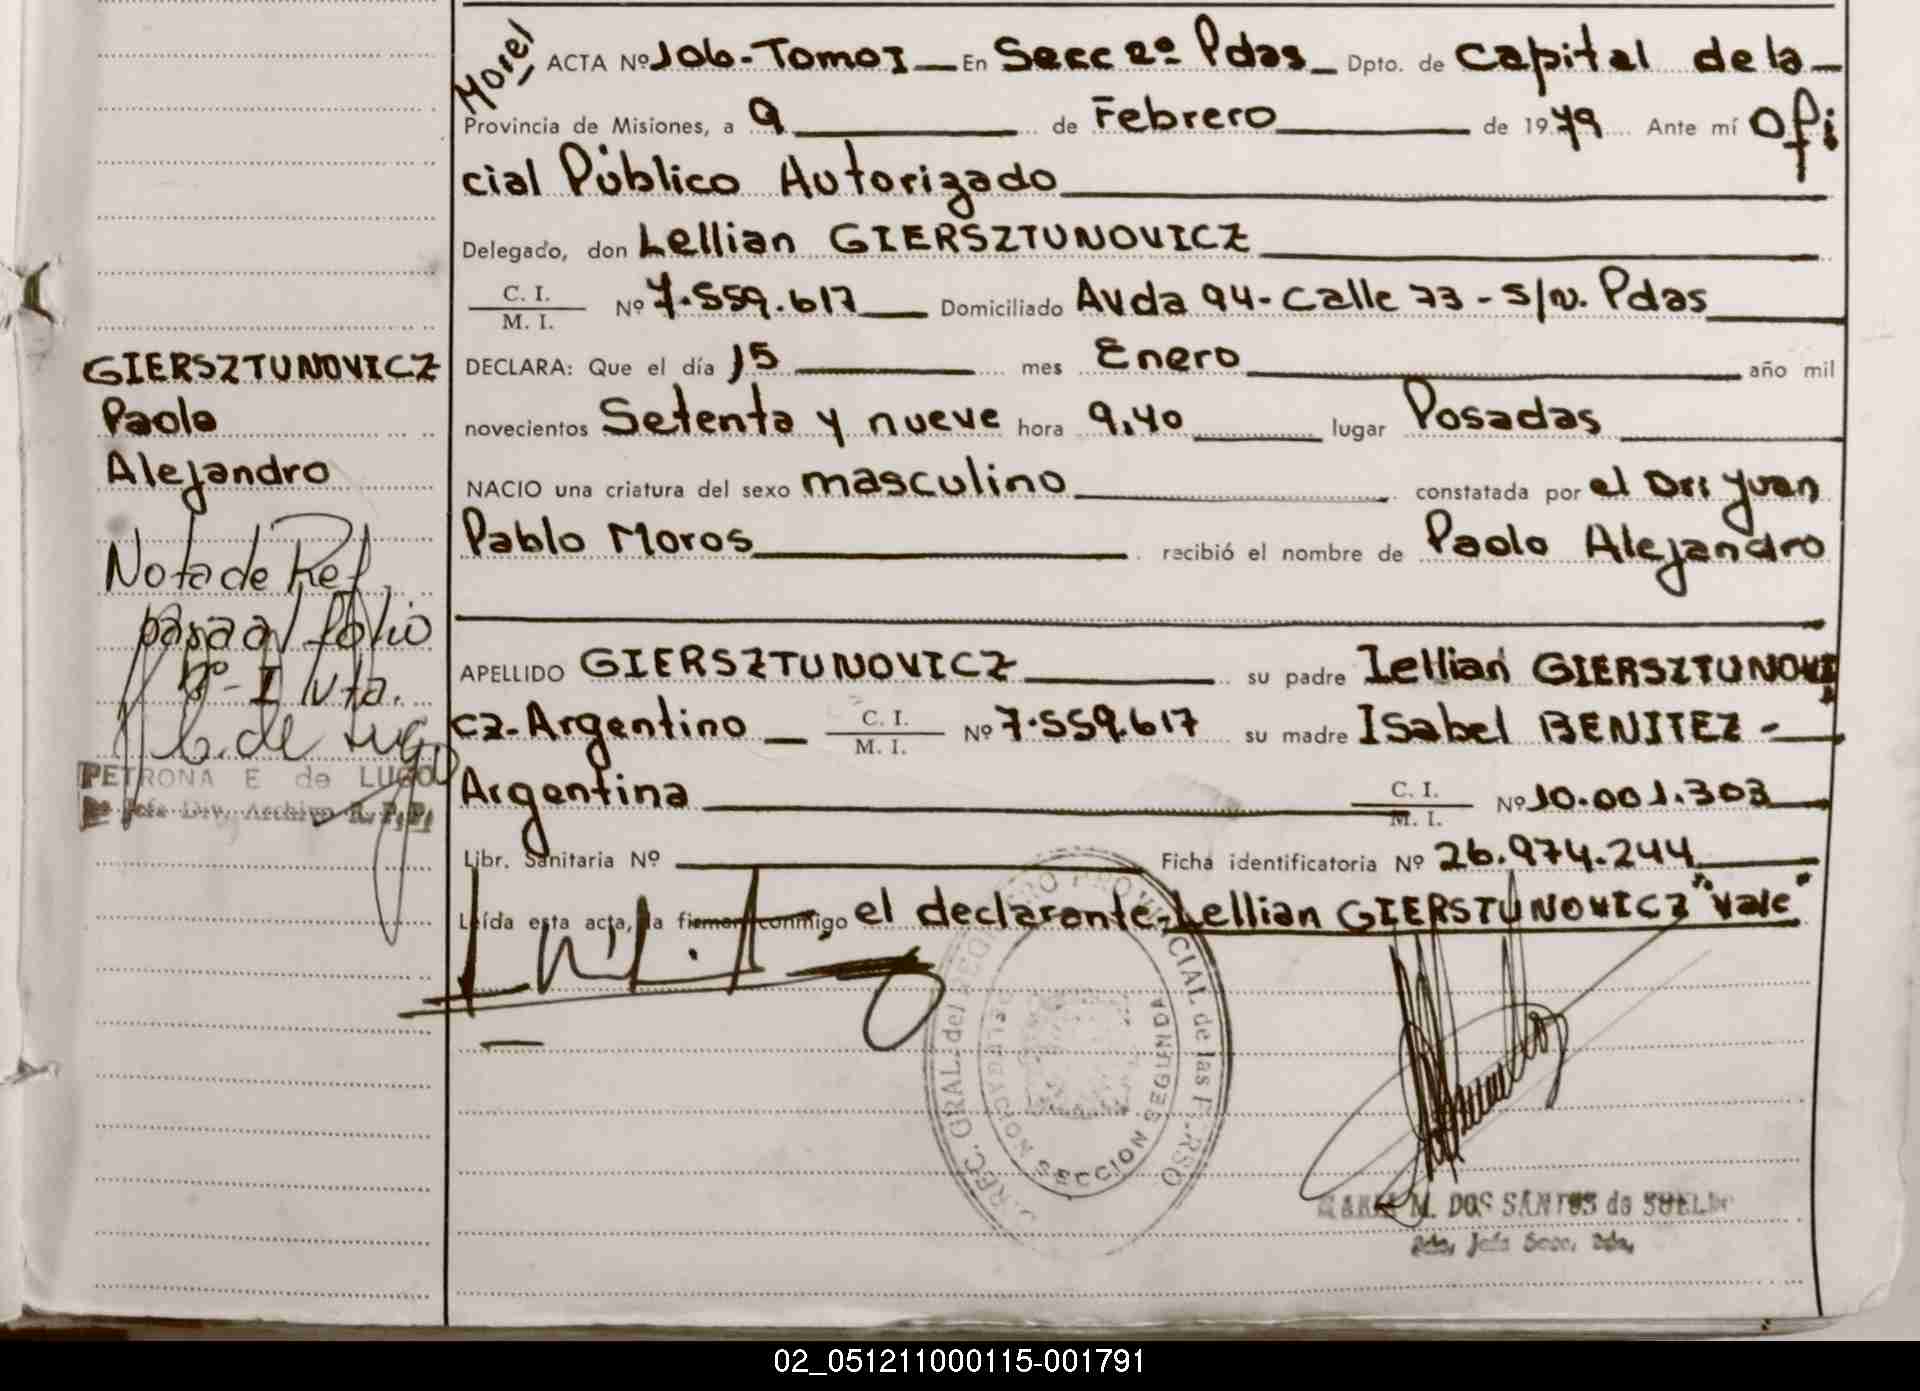 Morel
ACTA Nº 106-Tomo I En Secc 2º Pdas Dpto. de Capital de la
Provincia de Misiones, a 9 de Febrero de 1979 Ante mí Ofi
cial Público Autorizado
Delegado, don Lellian GIERSZTUNOVICZ
C. I.
M. I. Nº 7.559.617 Domiciliado Avda 94-Calle 73-S/n. Pdas
DECLARA: Que el día 15 mes Enero año mil
novecientos Setenta y nueve hora 9,40 lugar Posadas
NACIO una criatura del sexo masculino constatada por el Dr: Juan
Pablo Moros recibió el nombre de Paolo Alejandro
APELLIDO GIERSZTUNOVICZ su padre Lellian GIERSZTUNOVI
cz-Argentino C. I. M. I. Nº 7.559.617 su madre Isabel BENITEZ -
Argentina C. I. M. I. Nº 10.001.303
Libr. Sanitaria Nº Ficha identificatoria Nº 26.974.244
Leída esta acta, la firman conmigo el declarante-Lellian GIERSTUNOVICZ "Vale"
GIERSZTUNOVICZ
Paolo
Alejandro
Nota de Ref
pasa al folio
Nº-I vta.
E. de Lugo
PETRONA E de LUGO
Jefe Div. Archivo R.P.P.
REC. GRAL. del REGISTRO PROVINCIAL de las PERSO
SECCION SEGUNDA
MARIA M. DOS SANTOS de
Jefa Secc. 2da.
02_051211000115-001791